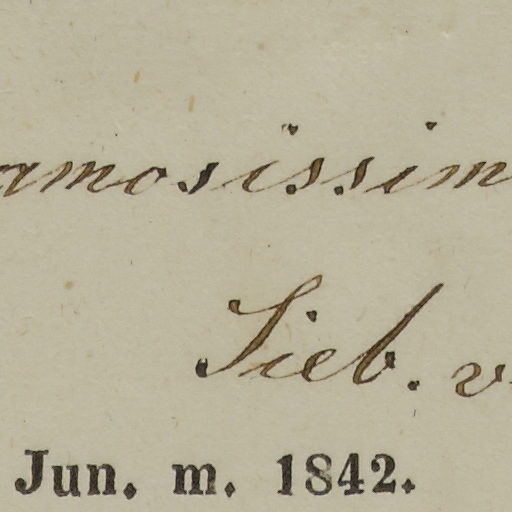 amosissim
Sieb. v
Jun. m. 1842.